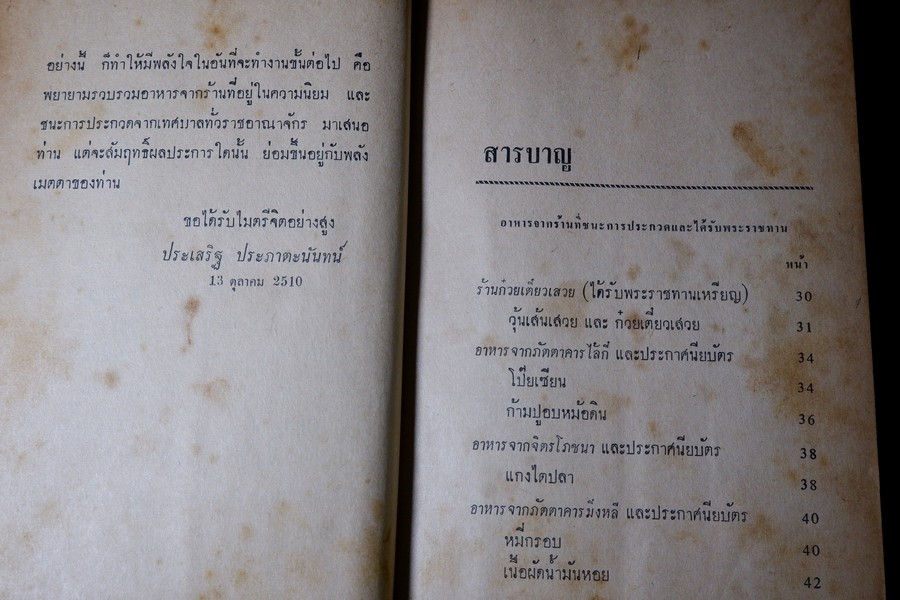 อย่างนี้ ก็ทำให้มีพลังใจในอันที่จะทำงานขั้นต่อไป คือ
พยายามรวบรวมอาหารจากร้านที่อยู่ในความนิยม และ
ชนะการประกวดจากเทศบาลทั่วราชอาณาจักร มาเสนอ
ท่าน แต่จะสัมฤทธิ์ผลประการใดนั้น ย่อมขึ้นอยู่กับพลัง
เมตตาของท่าน
ขอได้รับไมตรีจิตอย่างสูง
ประเสริฐ ประภาตะนันทน์
13 ตุลาคม 2510
สารบาญ
อาหารจากร้านที่ชนะการประกวดและได้รับพระราชทาน
หน้า
ร้านก๋วยเตี๋ยวเสวย (ได้รับพระราชทานเหรียญ) 30
วุ้นเส้นเสวย และ ก๋วยเตี๋ยวเสวย 31
อาหารจากภัตตาคารไล้กี่ และประกาศนียบัตร 34
โป๊ยเซียน 34
ก้ามปูอบหม้อดิน 36
อาหารจากจิตรโภชนา และประกาศนียบัตร 38
แกงไตปลา 38
อาหารจากภัตตาคารมิ่งหลี และประกาศนียบัตร 40
หมี่กรอบ 40
เนื้อผัดน้ำมันหอย 42